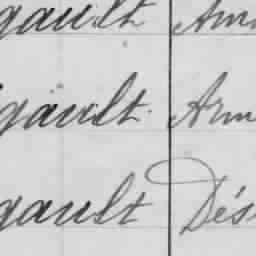 gault Arm
igault Arm
gault Dés